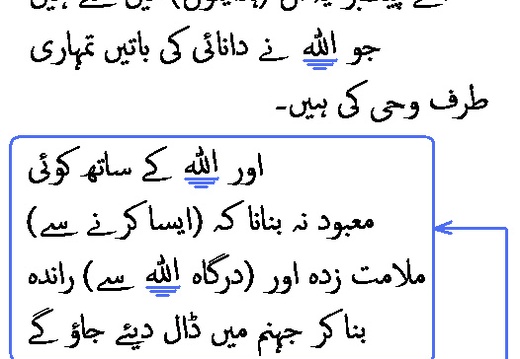 اے پیغمبر یہ ان (ہدایتوں) میں سے ہیں
جو اللہ نے دانائی کی باتیں تمہاری
طرف وحی کی ہیں۔
اور اللہ کے ساتھ کوئی
معبود نہ بنانا کہ (ایسا کرنے سے)
ملامت زدہ اور (درگاہ اللہ سے) راندہ
بنا کر جہنم میں ڈال دیئے جاؤ گے